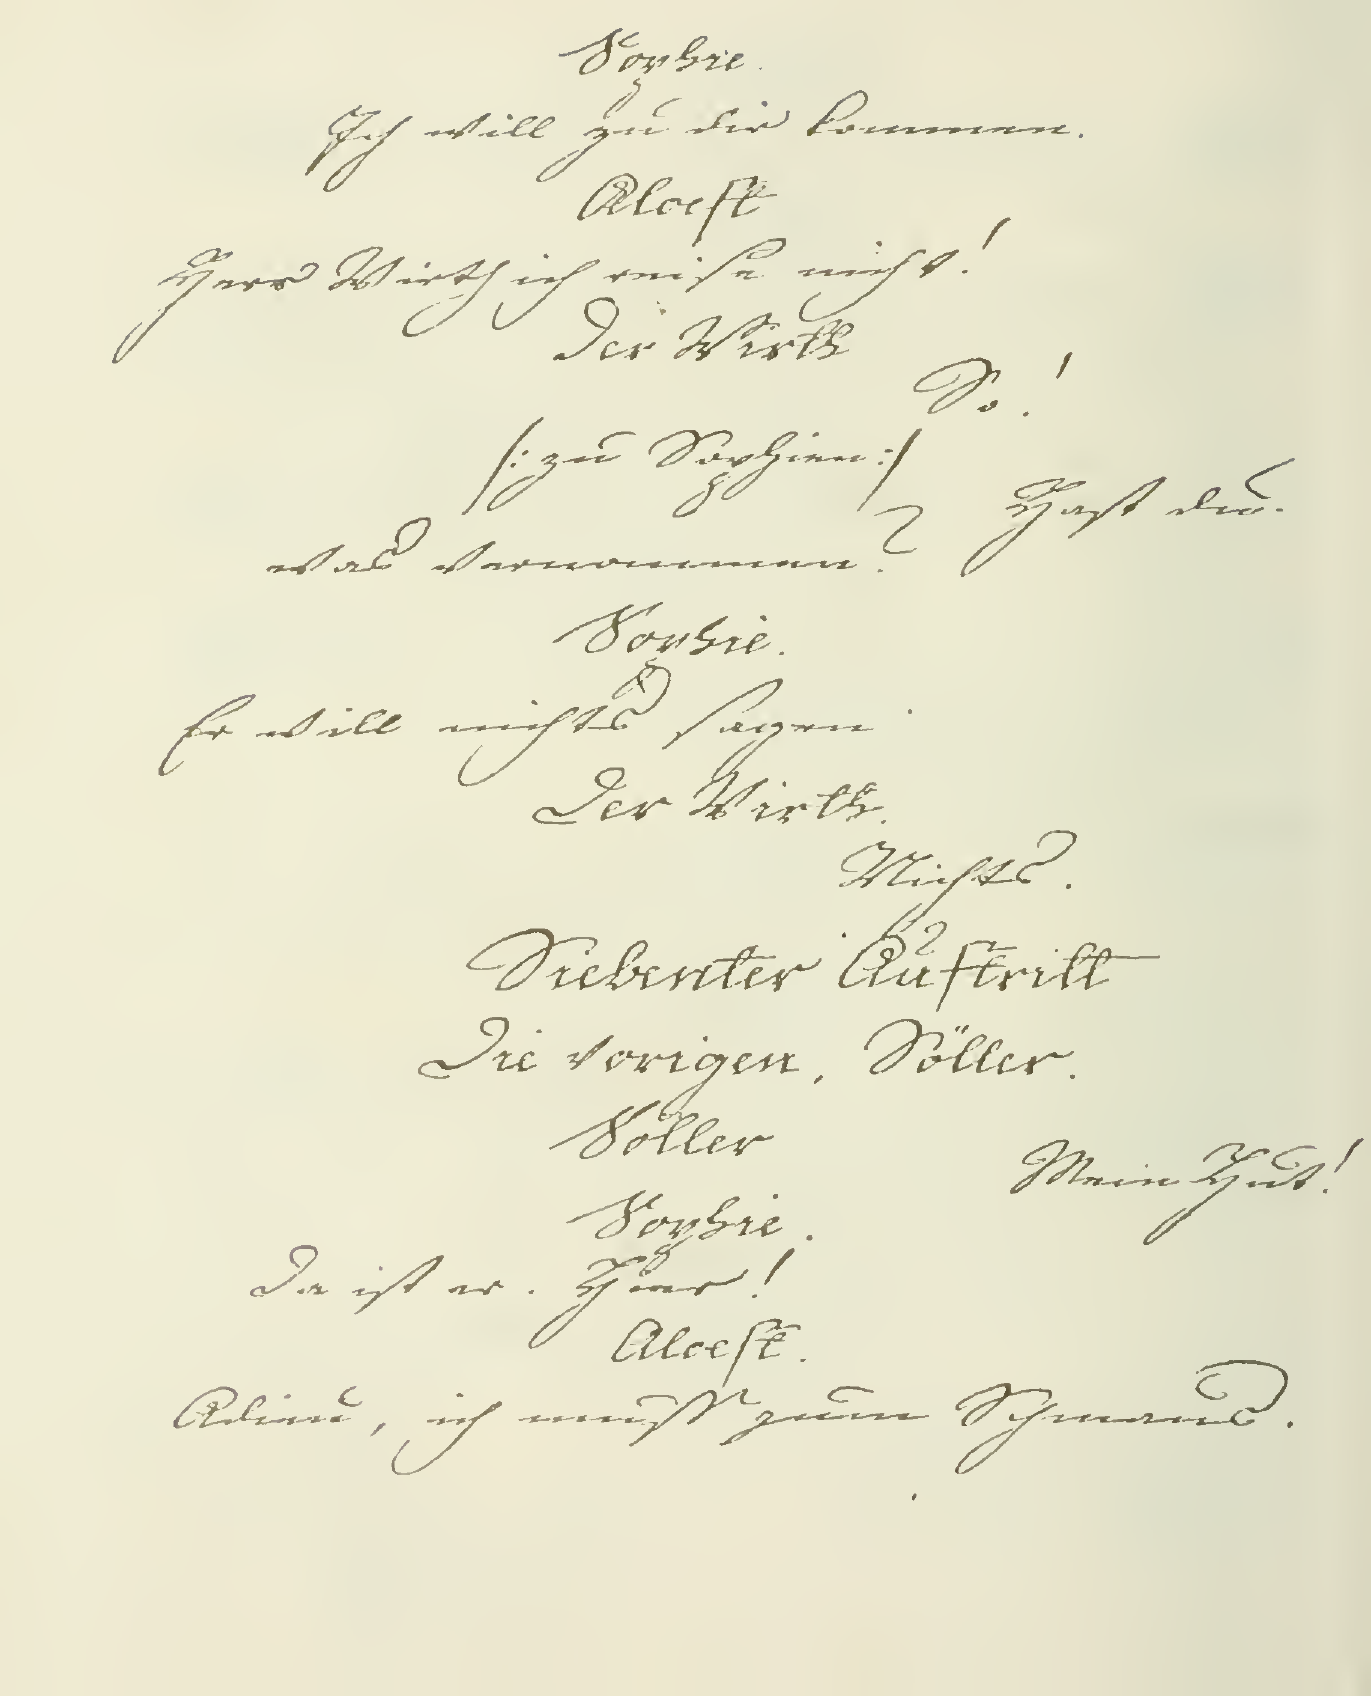 Sophie.
Ich will zu dir kommen.
Alcest
Herr Wirth ich reise nicht!
Der Wirth
So!
/: zu Sophien :/
Hast du.
was vernommen?
Sophie.
Er will nichts sagen
Der Wirth.
Nichts.
Siebenter Auftritt
Die vorigen, Söller.
Söller
Mein Hut!
Sophie.
Da ist er. Hier!
Alcest.
Adieu, ich muß zum Schmaus.